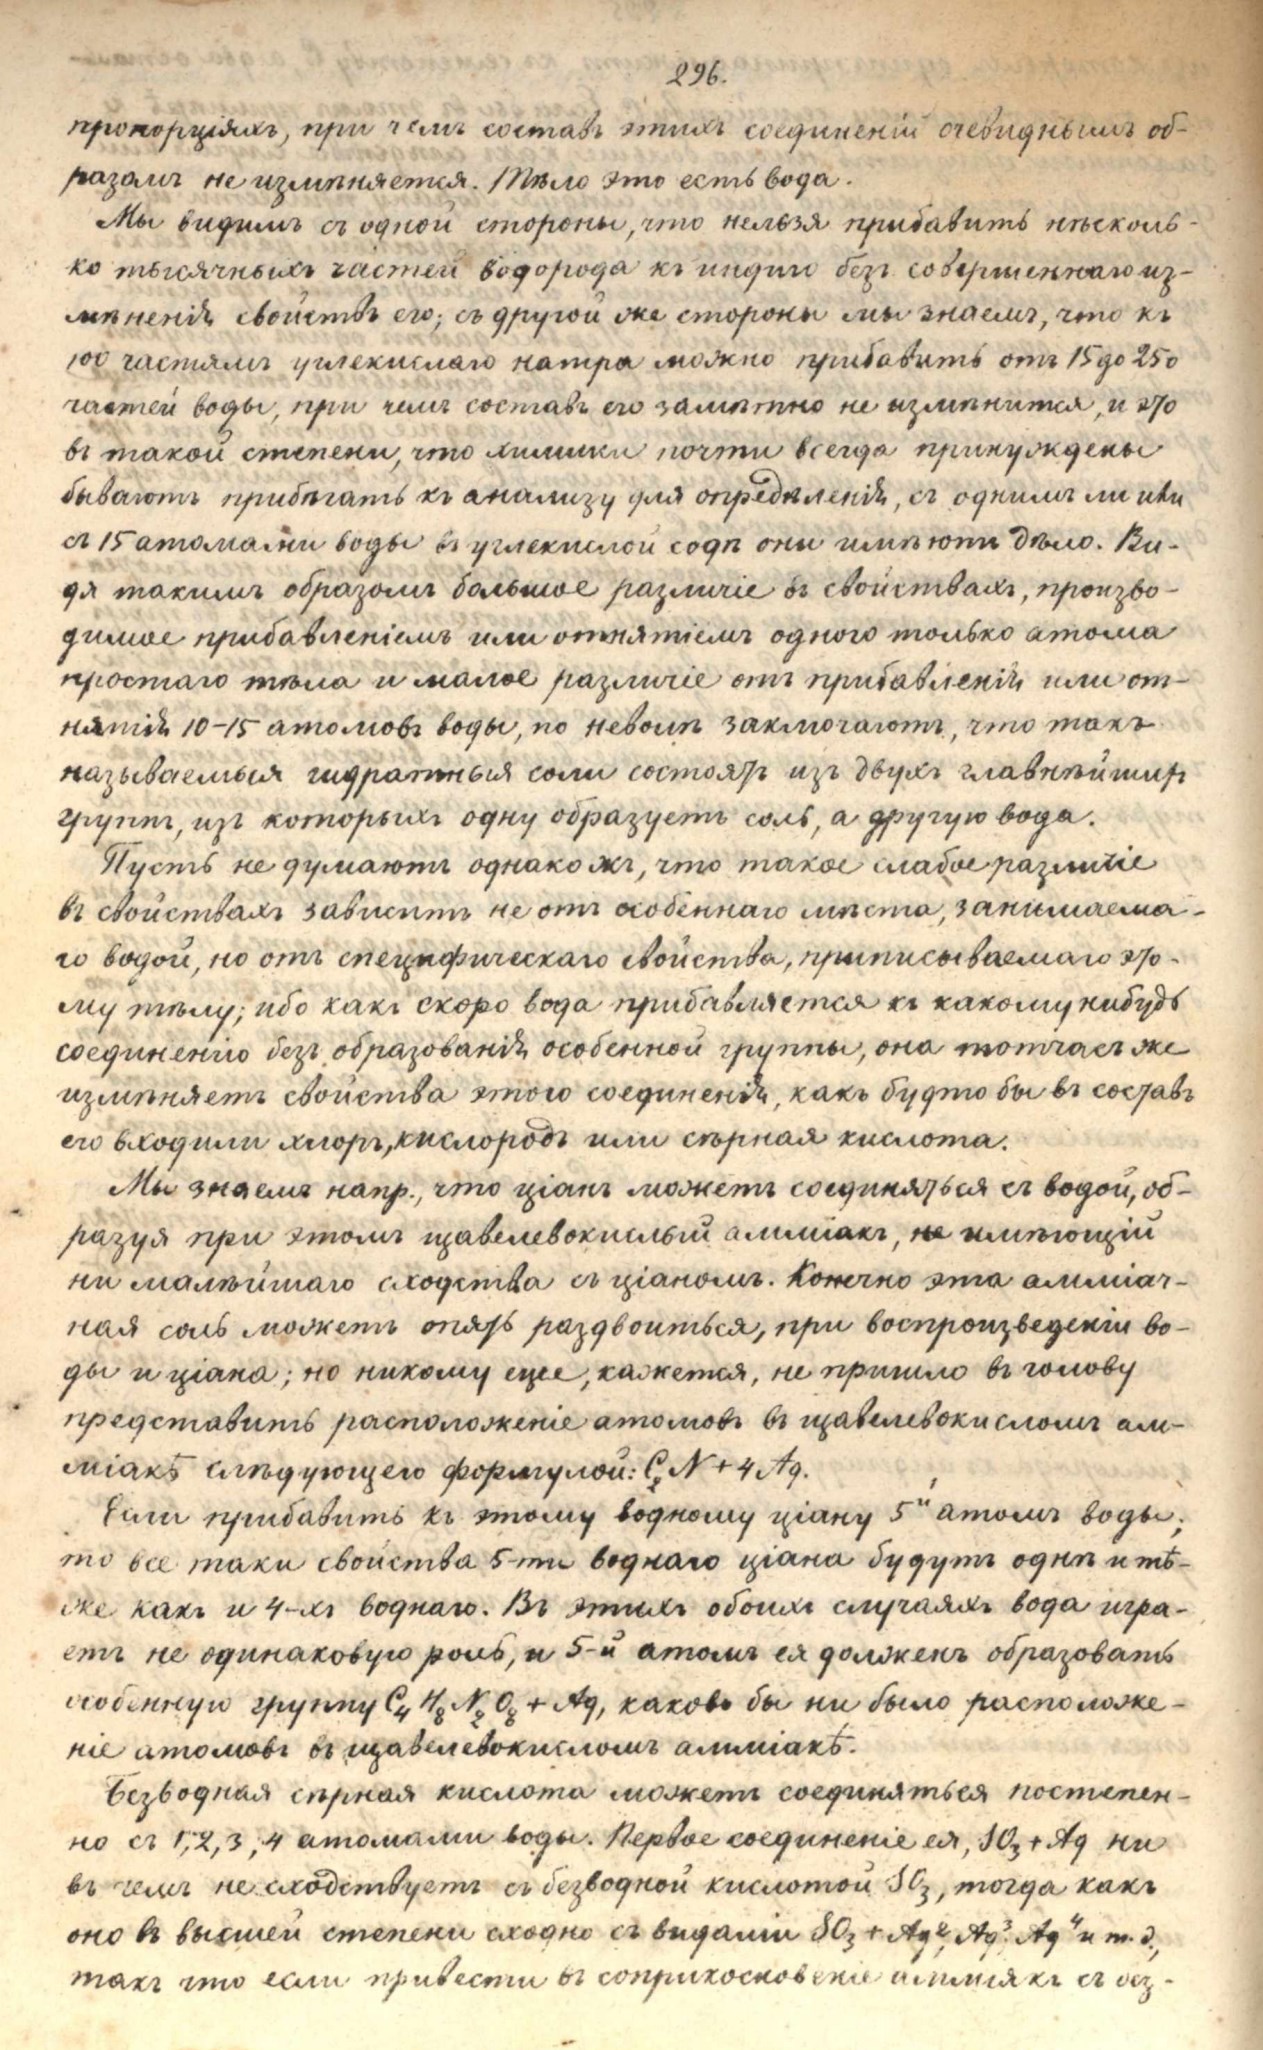 296.
пропорціяхъ, при чемъ составъ этихъ соединеній очевиднымъ об-
разомъ не измѣняется. Тѣло это есть вода.
Мы видимъ съ одной стороны, что нельзя прибавить нѣсколь-
ко тысячныхъ частей водорода къ индиго безъ совершеннаго из-
мѣненія свойствъ его; съ другой же стороны мы знаемъ, что къ
100 частямъ углекислаго натра можно прибавить отъ 15 до 250
частей воды, при чемъ составъ его замѣтно не измѣнится, и это
въ такой степени, что химики почти всегда принуждены
бываютъ прибѣгать къ анализу для опредѣленія, съ однимъ ли или
съ 15 атомами воды въ углекислой содѣ они имѣютъ дѣло. Ви-
дя такимъ образомъ большое различіе въ свойствахъ, произво-
димое прибавленіемъ или отнятіемъ одного только атома
простаго тѣла и малое различіе отъ прибавленія или от-
нятія 10-15 атомовъ воды, по неволѣ заключаютъ, что такъ
называемыя гидратныя соли состоятъ изъ двухъ главнѣйшихъ
группъ, изъ которыхъ одну образуетъ соль, а другую вода.
Пусть не думаютъ однакожъ, что такое слабое различіе
въ свойствахъ зависитъ не отъ особеннаго мѣста, занимаема-
го водой, но отъ специфическаго свойства, приписываемаго это-
му тѣлу; ибо какъ скоро вода прибавляется къ какому нибудь
соединенію безъ образованія особенной группы, она тотчасъ же
измѣняетъ свойства этого соединенія, какъ будто бы въ составъ
его входили хлоръ, кислородъ или сѣрная кислота.
Мы знаемъ напр., что ціанъ можетъ соединяться съ водой, об-
разуя при этомъ щавелевокислый амміакъ, не имѣющій
ни малѣйшаго сходства съ ціаномъ. Конечно эта амміач-
ная соль можетъ опять раздвоиться, при воспроизведеніи во-
ды и ціана; но никому еще, кажется, не пришло въ голову
представить расположеніе атомовъ въ щавелевокисломъ ам-
міакѣ слѣдующею формулой: C₂N + 4 Aq.
Если прибавить къ этому водному ціану 5й атомъ воды,
то все таки свойства 5-ти воднаго ціана будутъ однѣ и тѣ-
же какъ и 4-хъ воднаго. Въ этихъ обоихъ случаяхъ вода игра-
етъ не одинаковую роль, и 5-й атомъ ея долженъ образовать
особенную группу C₄H₈N₂O₈ + Aq, каково бы ни было расположе-
ніе атомовъ въ щавелевокисломъ амміакѣ.
Безводная сѣрная кислота можетъ соединяться постепен-
но съ 1, 2, 3, 4 атомами воды. Первое соединеніе ея, SO₃ + Aq ни
въ чемъ не сходствуетъ съ безводной кислотой SO₃, тогда какъ
оно въ высшей степени сходно съ видами SO₃ + Aq², Aq³ Aq⁴ и т. д.,
такъ что если привести въ соприкосновеніе амміякъ съ без-